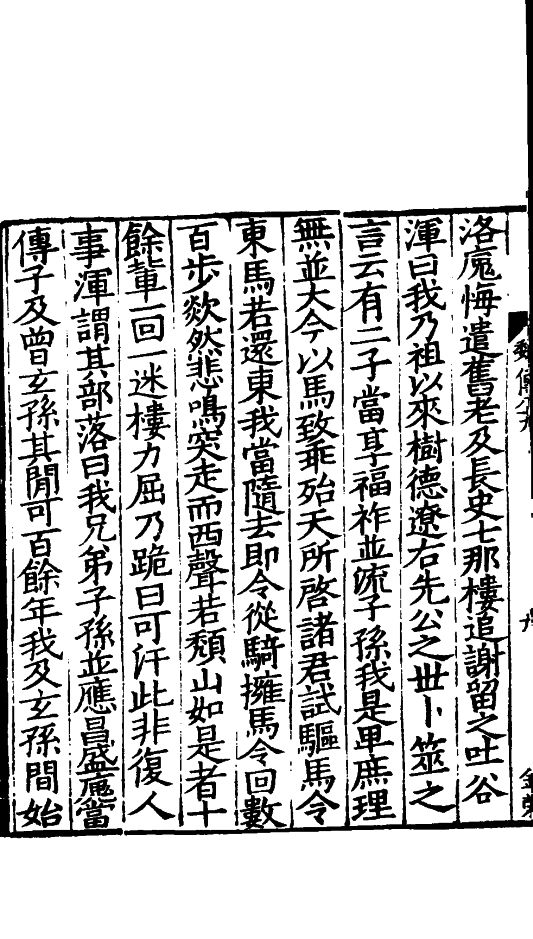 魏傳八九
洛廆悔遣舊老及長史七那樓追謝留之吐谷
渾曰我乃祖以來樹德遼右先公之世卜筮之
言云有二子當享福祚並流子孫我是卑庶理
無並大今以馬致乖殆天所啓諸君試驅馬令
東馬若還東我當隨去即令從騎擁馬令回數
百步欻然悲鳴突走而西聲若頹山如是者十
餘輩一回一迷樓力屈乃跪曰可汗此非復人
事渾謂其部落曰我兄弟子孫並應昌盛廆當
傳子及曾玄孫其閒可百餘年我及玄孫間始